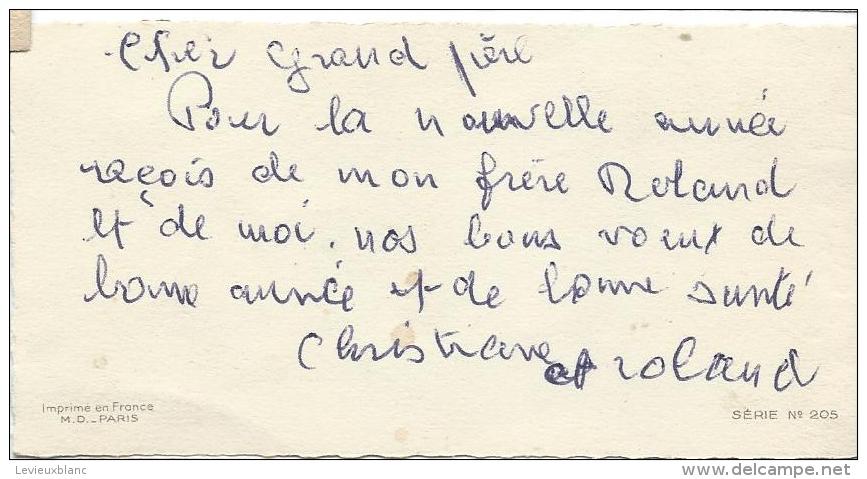 Cher grand père
Pour la nouvelle année
reçois de mon frère Roland
et de moi, nos bons voeux de
bonne année et de bonne santé
Christiane et roland
Imprimé en France
M.D._PARIS
SÉRIE Nº 205
Levieuxblanc
delcampe.net